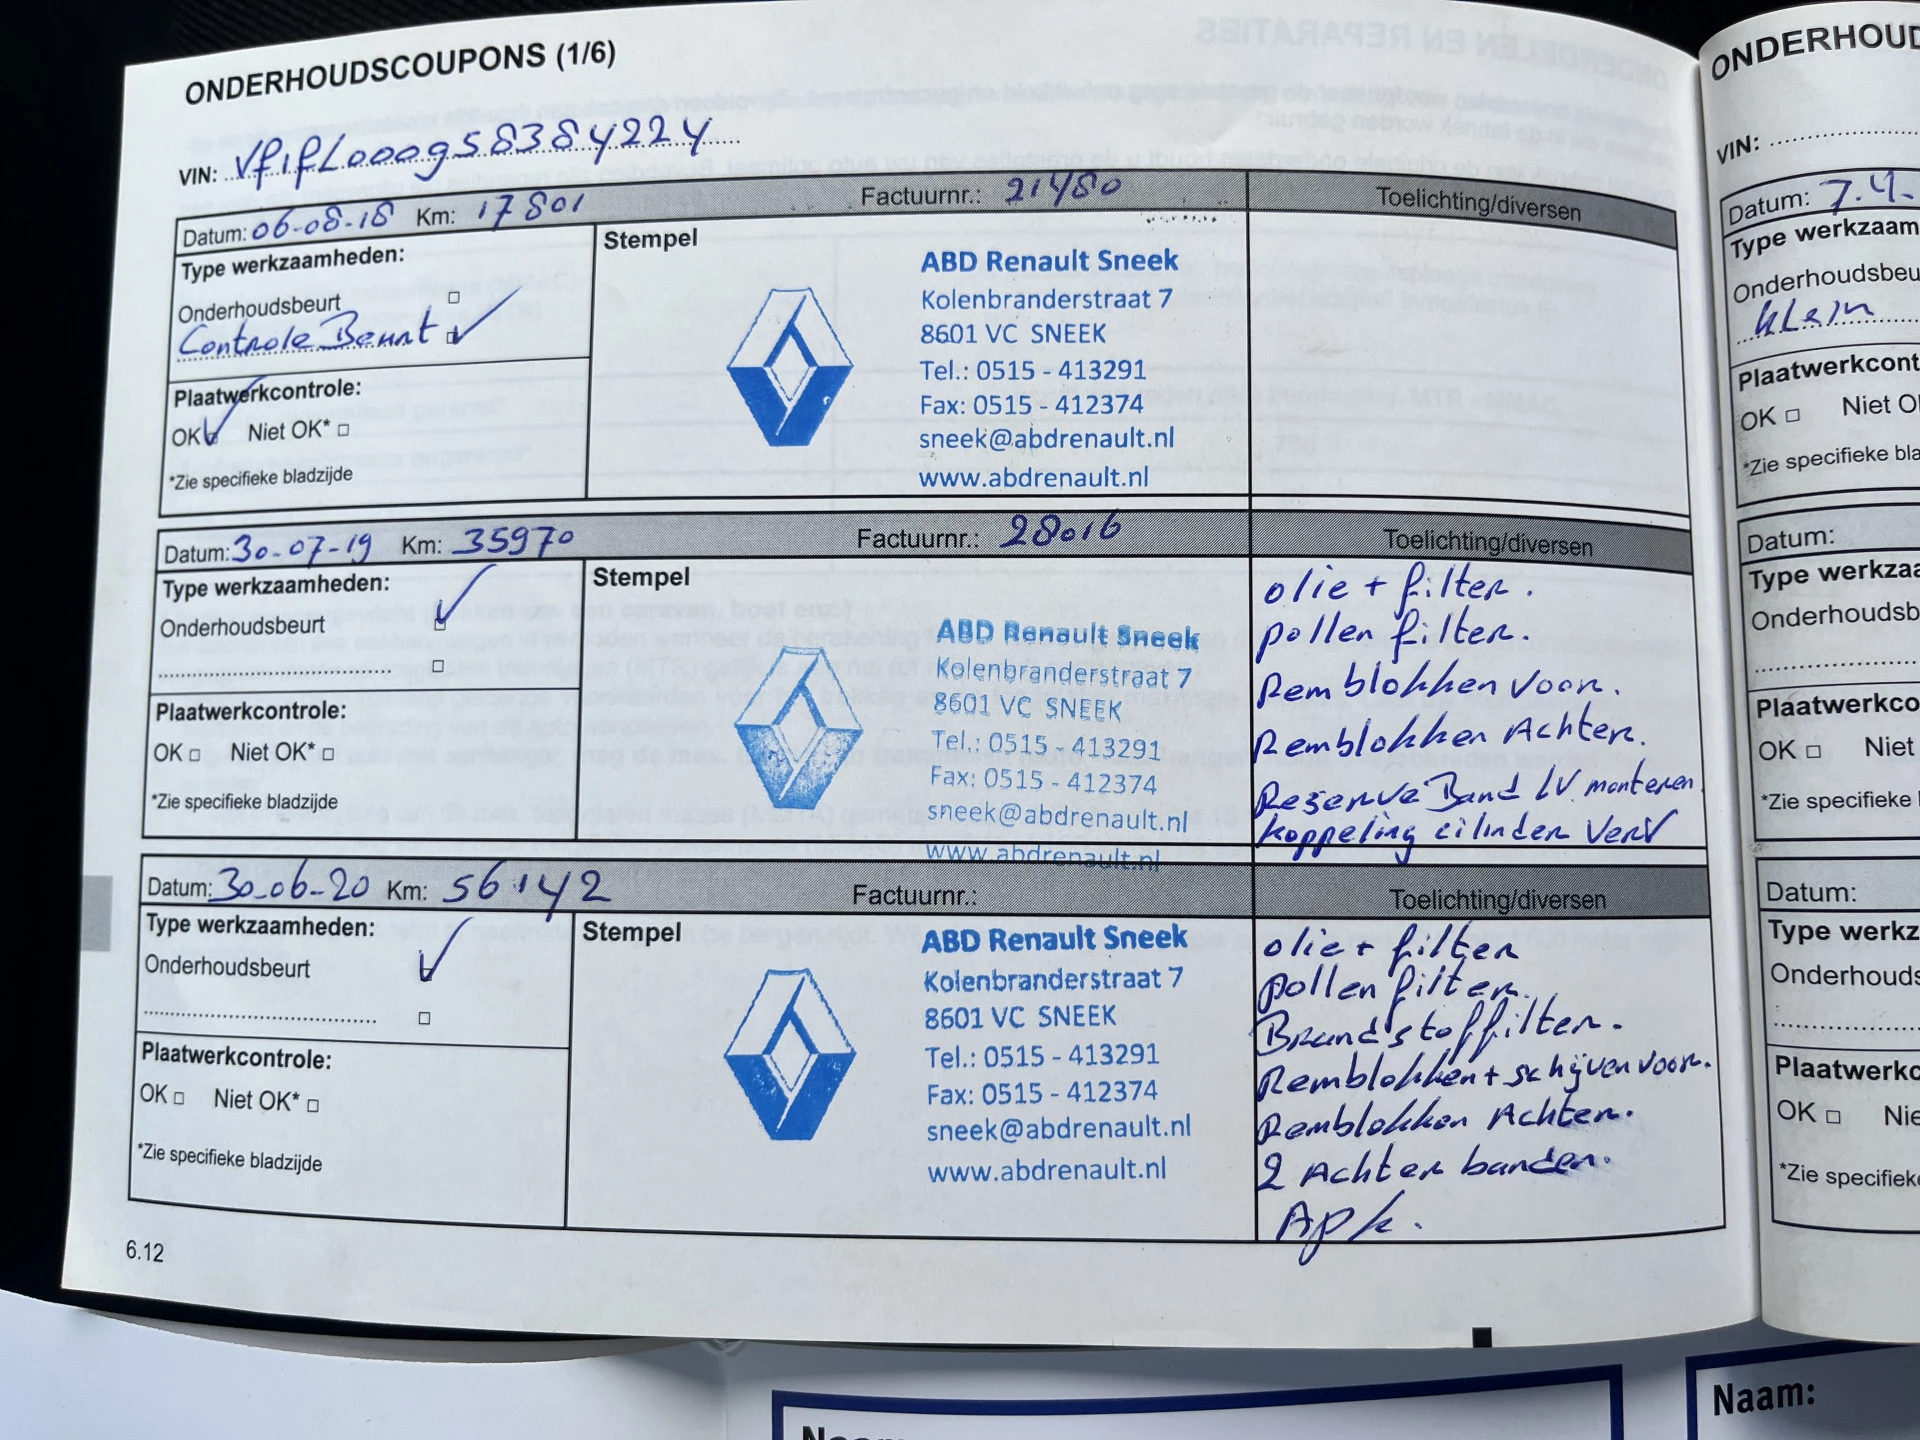 ONDERHOUDSCOUPONS (1/6)
VIN: VfifL000g58384224
Datum: 06-08-18 Km: 17801 Factuurnr.: 21480 Toelichting/diversen
Type werkzaamheden:
Onderhoudsbeurt
Controle Beurt
Plaatwerkcontrole:
OK Niet OK*
*Zie specifieke bladzijde
Stempel
ABD Renault Sneek
Kolenbranderstraat 7
8601 VC SNEEK
Tel.: 0515 - 413291
Fax: 0515 - 412374
sneek@abdrenault.nl
www.abdrenault.nl
Datum: 30-07-19 Km: 35970 Factuurnr.: 28016 Toelichting/diversen
Type werkzaamheden:
Onderhoudsbeurt
Plaatwerkcontrole:
OK Niet OK*
*Zie specifieke bladzijde
Stempel
ABD Renault Sneek
Kolenbranderstraat 7
8601 VC SNEEK
Tel.: 0515 - 413291
Fax: 0515 - 412374
sneek@abdrenault.nl
www.abdrenault.nl
olie + filter.
pollen filter.
Remblokken voor.
Remblokken Achter.
Reserve Band LV monteren
koppeling cilinder verv
Datum: 30-06-20 Km: 56142 Factuurnr.: Toelichting/diversen
Type werkzaamheden:
Onderhoudsbeurt
Plaatwerkcontrole:
OK Niet OK*
*Zie specifieke bladzijde
Stempel
ABD Renault Sneek
Kolenbranderstraat 7
8601 VC SNEEK
Tel.: 0515 - 413291
Fax: 0515 - 412374
sneek@abdrenault.nl
www.abdrenault.nl
olie + filter
pollen filter.
Brandstoffilter.
Remblokken + schijven voor.
Remblokken Achter.
2 Achter banden.
Apk.
6.12
ONDERHOUD
VIN:
Datum: 7.4.
Type werkzaam
Onderhoudsbeu
klein
Plaatwerkcont
OK Niet O
*Zie specifieke bla
Datum:
Type werkzaa
Onderhoudsb
Plaatwerkco
OK Niet
*Zie specifieke
Datum:
Type werkz
Onderhouds
Plaatwerkc
OK Nie
*Zie specifieke
Naam: